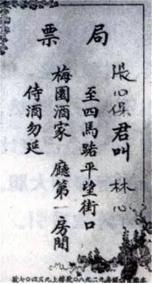 局票
張心俣君叫 林心
至四馬路平望街口
梅園酒家 廳第一房間
侍酒勿延